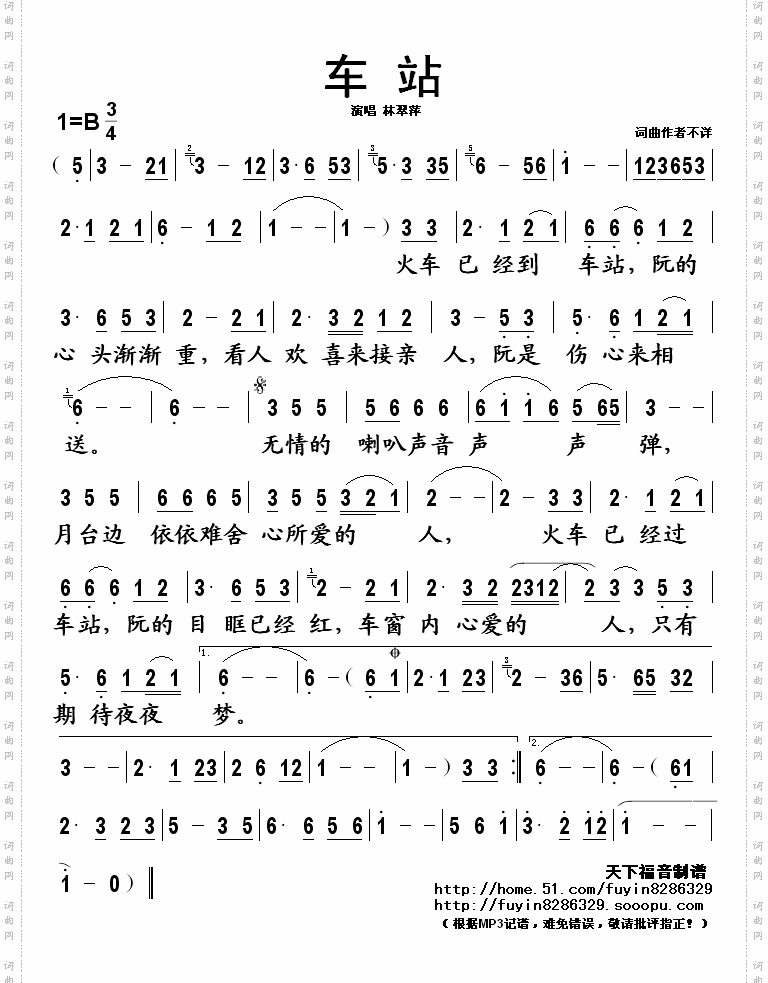 车 站
演唱 林翠萍
1=B 3/4
词曲作者不详
( 5 | 3 – 21 | 2 3 – 12 | 3· 6 53 | 3 5· 3 35 | 5 6 – 56 | 1 – – | 123653 |
2· 1 2 1 | 6 – 1 2 | 1 – – | 1 – ) 3 3 | 2· 1 2 1 | 6 6 6 1 2 |
火车 已 经到 车站，阮的
3· 6 5 3 | 2 – 2 1 | 2· 3 2 1 2 | 3 – 5 3 | 5· 6 1 2 1 |
心 头渐渐 重，看人 欢 喜来接亲 人，阮是 伤 心来相
1 6 – – | 6 – – | 3 5 5 | 5 6 6 6 | 6 1 1 6 5 65 | 3 – – |
送。 无情的 喇叭声音 声 声 弹，
3 5 5 | 6 6 6 5 | 3 5 5 3 2 1 | 2 – – | 2 – 3 3 | 2· 1 2 1 |
月台边 依依难舍 心所爱的 人， 火车 已 经过
6 6 6 1 2 | 3· 6 5 3 | 1 2 – 2 1 | 2· 3 2 2312 | 2 3 3 5 3 |
车站，阮的 目 眶已经 红，车窗 内 心爱的 人，只有
5· 6 1 2 1 | 1. 6 – – | 6 – ( 6 1 | 2· 1 23 | 3 2 – 36 | 5· 65 32 |
期 待夜夜 梦。
3 – – | 2· 1 23 | 2 6 12 | 1 – – | 1 – ) 3 3 :‖ 2. 6 – – | 6 – ( 61 |
2· 3 2 3 | 5 – 3 5 | 6· 6 5 6 | 1 – – | 5 6 1 | 3· 2 12 | 1 – – |
1 – 0 ) ‖
天下福音制谱
http://home.51.com/fuyin8286329
http://fuyin8286329.sooopu.com
（根据MP3记谱，难免错误，敬请批评指正！）
词曲网